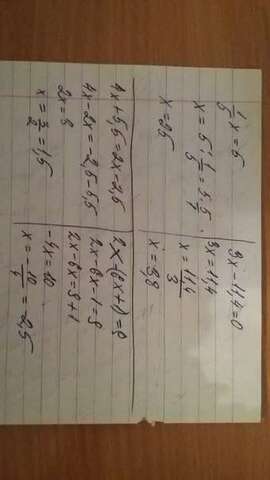 1/5 x = 5
x = 5 : 1/5 = 5 · 5/1
x = 25
3x - 11,4 = 0
3x = 11,4
x = 11,4/3
x = 3,8
4x + 5,5 = 2x - 2,5
4x - 2x = -2,5 - 5,5
2x = 3
x = 3/2 = 1,5
2x - (6x + 1) = 9
2x - 6x - 1 = 9
2x - 6x = 9 + 1
-4x = 10
x = - 10/4 = 2,5